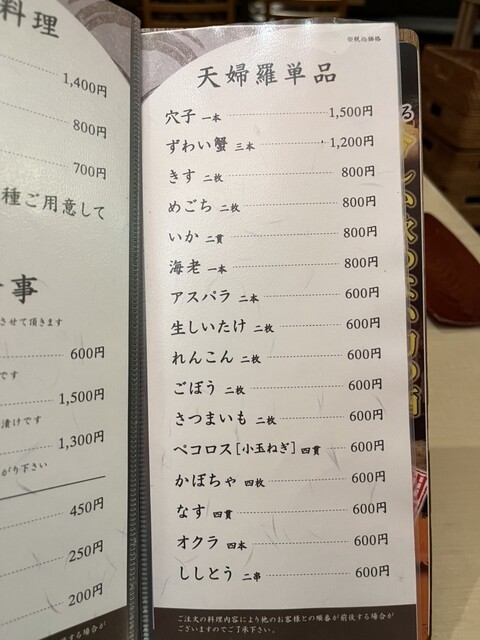 料理
1,400円
800円
700円
種ご用意して
事
させて頂きます
600円
です
1,500円
漬けです
1,300円
がり下さい
450円
250円
200円
する場合が
※税込価格
天婦羅単品
穴子 一本 1,500円
ずわい蟹 三本 1,200円
きす 二枚 800円
めごち 二枚 800円
いか 二貫 800円
海老 一本 800円
アスパラ 二本 600円
生しいたけ 二枚 600円
れんこん 二枚 600円
ごぼう 二枚 600円
さつまいも 二枚 600円
ペコロス[小玉ねぎ] 四貫 600円
かぼちゃ 四枚 600円
なす 四貫 600円
オクラ 四本 600円
ししとう 二串 600円
ご注文の料理内容により他のお客様との順番が前後する場合が
ございますのでご了承下さい。
る